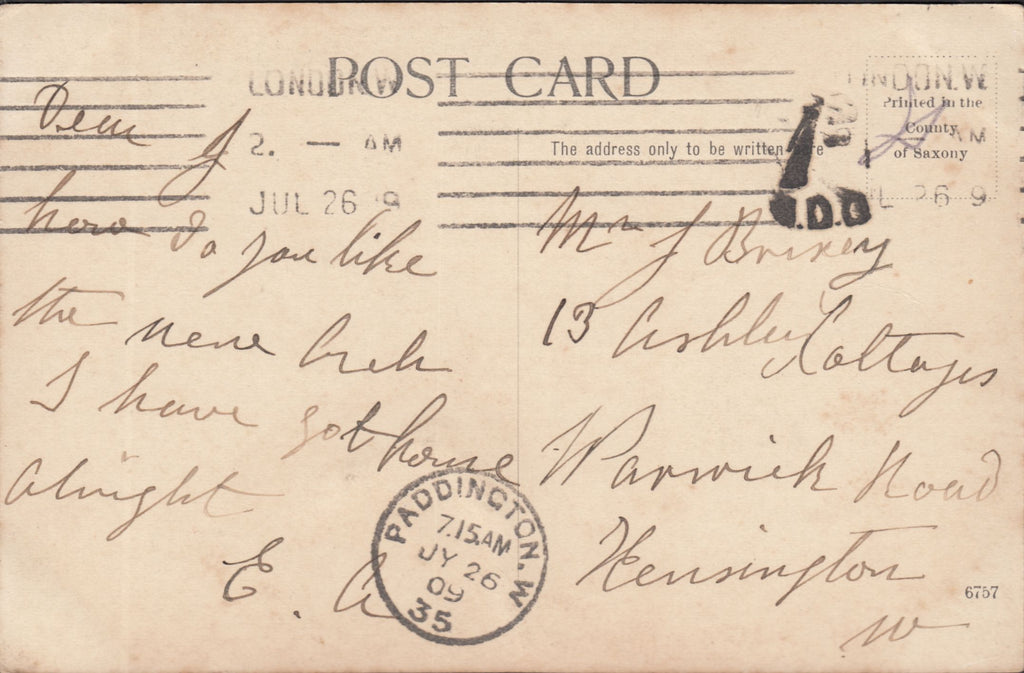 POST CARD
LONDON.W
2. — AM
JUL 26 9
LONDON.W
AM
JUL 26 9
Printed in the
County
of Saxony
The address only to be written here
1
Dear J
how do you like
the new
I have got home
alright
E. A
Mr J Brixey
13 Ashley Cottages
Warwick Road
Kensington
W
PADDINGTON.W
7.15.AM
JY 26
09
35
6757